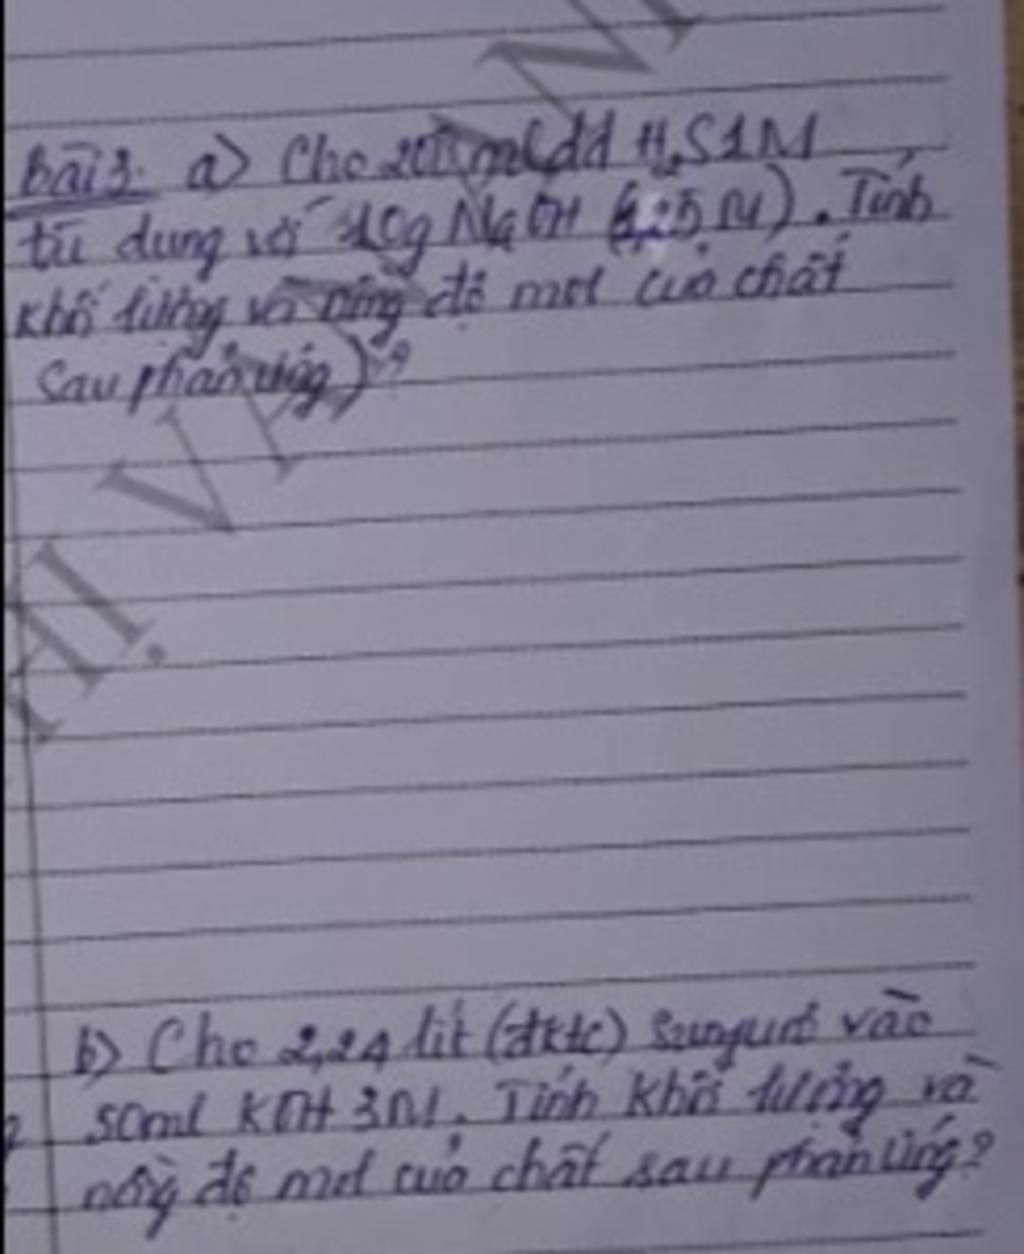 Bài 3. a) Cho 200 ml dd H₂S 1M
tu dung với 10g NaOH (1,25 M). Tính
khối lượng và nồng độ mol của chất
sau phản ứng)?
b) Cho 2,24 lít (đktc) vào
50ml KOH 3M. Tính khối lượng và
nồng độ mol của chất sau phản ứng?